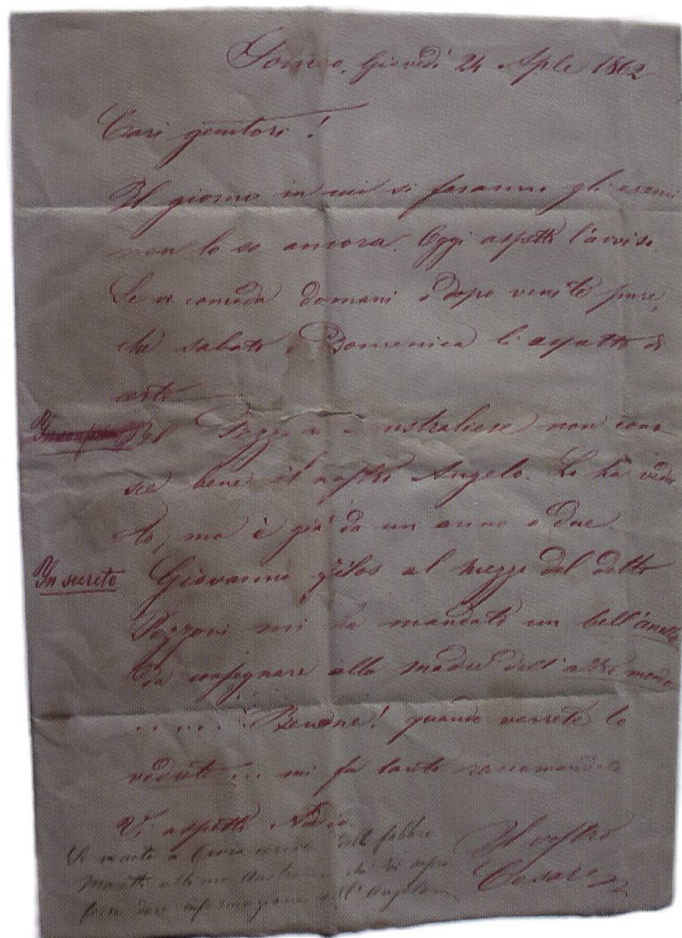 Giovedì 24 Aple 1862
Cari genitori!
Il giorno in cui si faranno gli esami
non lo so ancora. Oggi aspetto l'avviso.
Se vi comoda domani o dopo venite pure,
che sabato e Domenica li aspetto di
certo
Pozzoni Australiese non cono
sce bene il nostro Angelo. Lo ha vedu
to, ma è già da un anno o due.
In secreto Giovanni al mezzo del detto
Pozzoni mi ha mandato un bell'anello
da consegnare alla madre dell'altro mondo
..... Benone! quando verrete lo
vedrete... mi fu tanto raccomandato
Vi aspetto Addio.
Il vostro
Cesare
fabbro
Moretti ultimo
informazione dell'Angelo